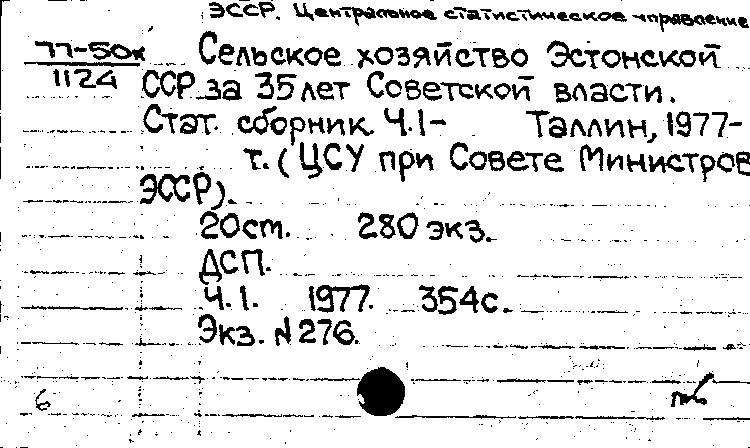 ЭССР. Центральное статистическое управление
77-50к
1124
Сельское хозяйство Эстонской
ССР за 35 лет Советской власти.
Стат. сборник. Ч.1- Таллин, 1977-
т. (ЦСУ при Совете Министров
ЭССР).
20см. 280 экз.
ДСП.
Ч.1. 1977. 354с.
Экз. № 276.
6